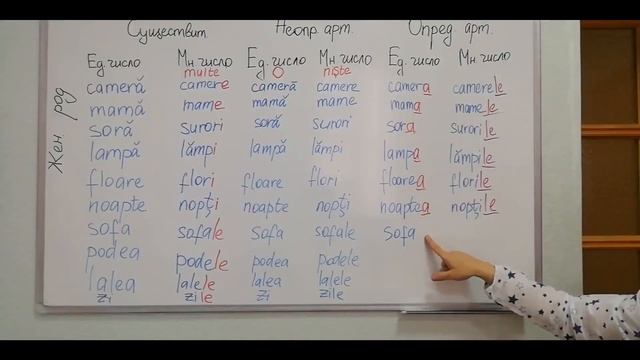 Существит. Неопр. арт. Опред. арт.
Ед. число Мн. число Ед. число Мн. число Ед. число Мн. число
multe O niște
Жен род
cameră camere cameră camere camera camerele
mamă mame mamă mame mama mamele
soră surori soră surori sora surorile
lampă lămpi lampă lămpi lampa lămpile
floare flori floare flori floarea florile
noapte nopți noapte nopți noaptea nopțile
sofa sofale sofa sofale sofa
podea podele podea podele
lalea lalele lalea lalele
zi zile zi zile